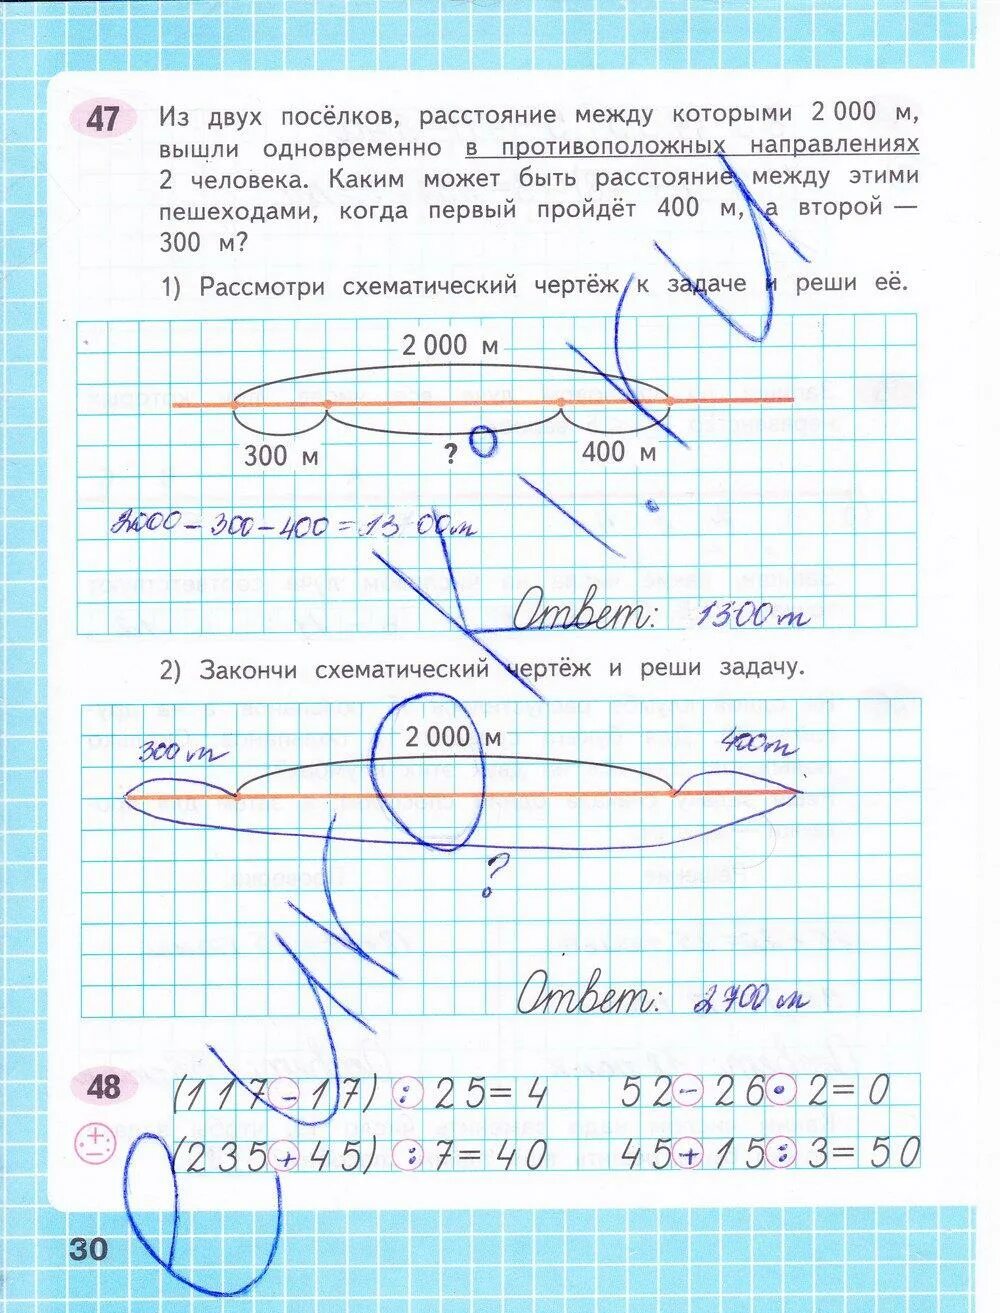 47 Из двух посёлков, расстояние между которыми 2 000 м,
вышли одновременно в противоположных направлениях
2 человека. Каким может быть расстояние между этими
пешеходами, когда первый пройдёт 400 м, а второй —
300 м?
1) Рассмотри схематический чертёж к задаче и реши её.
2 000 м
300 м ? 400 м
2000 - 300 - 400 = 1300 м
Ответ: 1300 м
2) Закончи схематический чертёж и реши задачу.
300 м 2 000 м 400 м
?
Ответ: 2700 м
48 (117-17) : 25= 4 52-26·2=0
(235+45) : 7=40 45+15:3=50
30